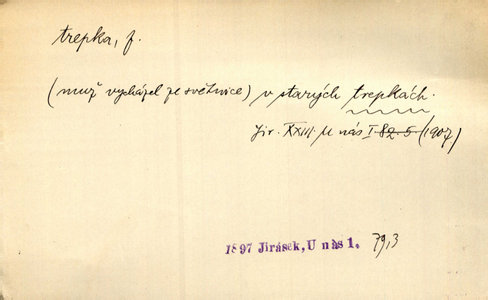 trepka, f.
(muž vycházel ze světnice) v starých trepkách.
Jir. XXIII. U nás I 82. 5 (1907)
1897 Jirásek, U nás 1. 79,3